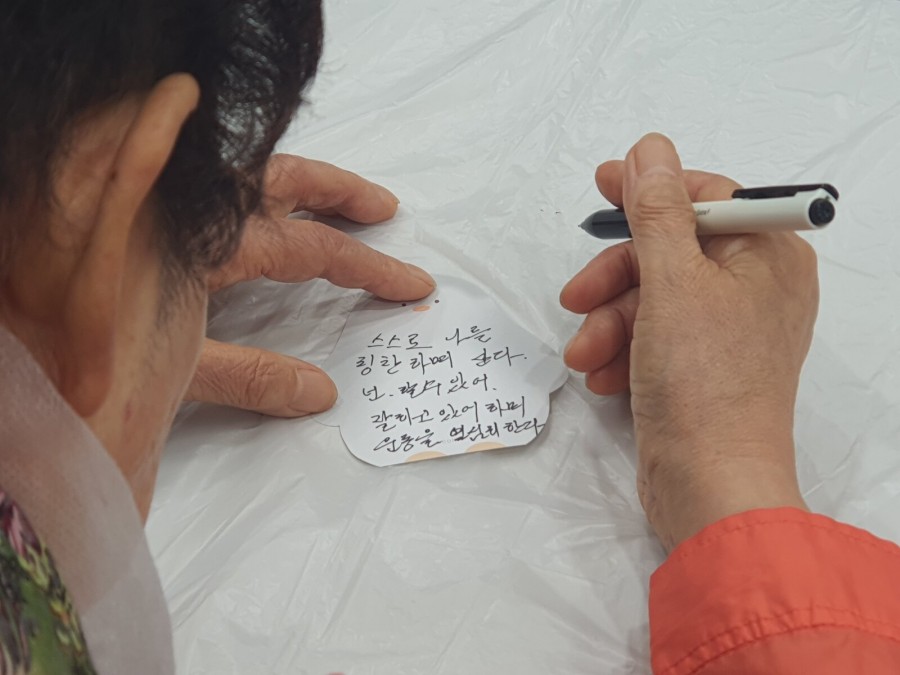 스스로 나를
칭찬 라며 살다.
넌. 할수 있어.
잘하고 있어 라며
운동을 열심히 한다